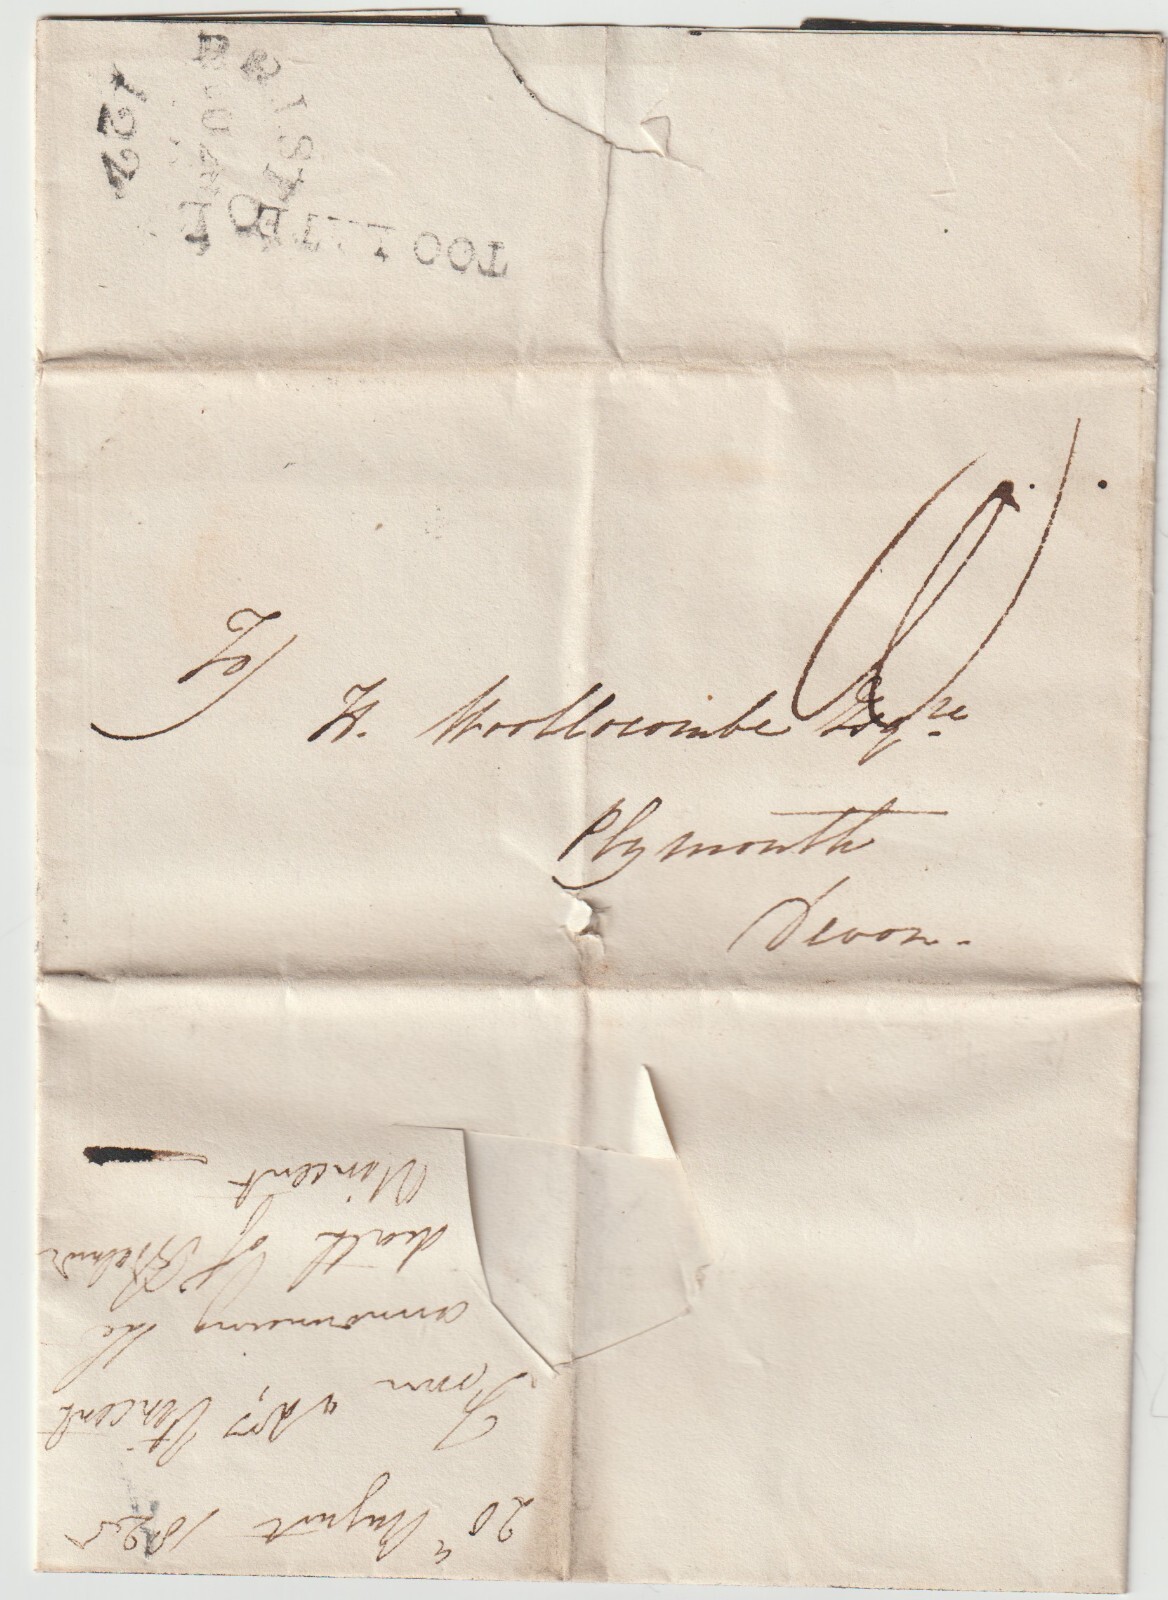 BRISTOL
122
TOO LATE
To
H. Woollcombe Esqre
Plymouth
Devon.
20th August 1825
From Adm Vincent
announcing the
death of
Vincent